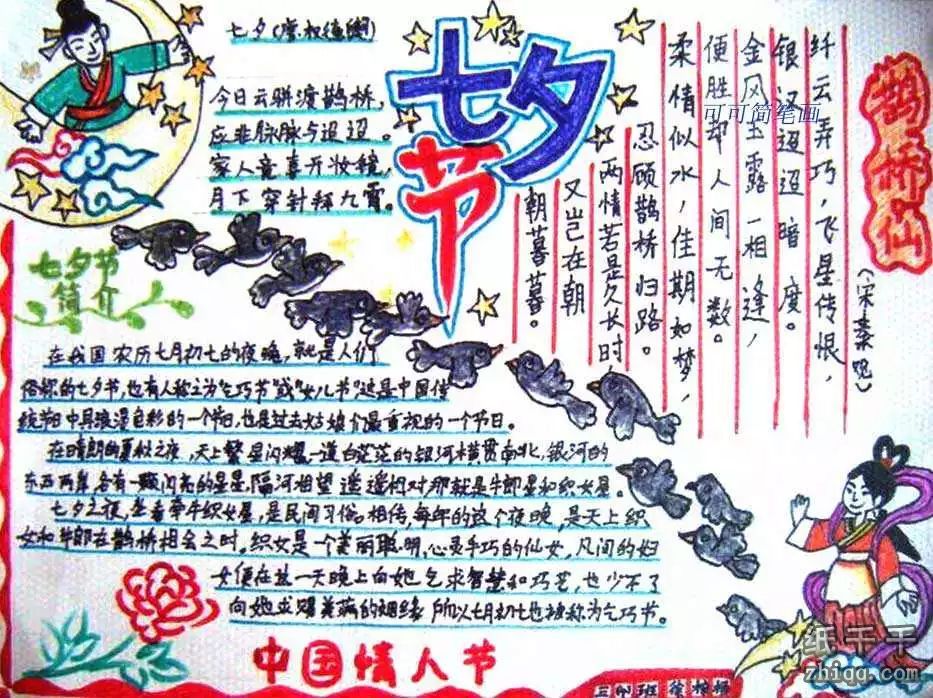 七夕(唐 权德舆)
今日云骈渡鹊桥,
应非脉脉与迢迢。
家人竞喜开妆镜,
月下穿针拜九霄。
七夕节
鹊桥仙
(宋 秦观)
纤云弄巧,飞星传恨,
银汉迢迢暗度。
金风玉露一相逢,
便胜却人间无数。
柔情似水,佳期如梦,
忍顾鹊桥归路。
两情若是久长时
又岂在朝
朝暮暮。
可可简笔画
七夕节
简介
在我国农历七月初七的夜晚,就是人们
俗称的七夕节,也有人称之为“乞巧节”或“女儿节”这是中国传
统节日中具浪漫色彩的一个节日,也是过去姑娘们最重视的一个节日。
在晴朗的夏秋之夜,天上繁星闪耀,一道白茫茫的银河横贯南北,银河的
东西两岸,各有一颗闪亮的星星,隔河相望,遥遥相对,那就是牛郎星和织女星。
七夕之夜,坐看牵牛织女星,是民间习俗。相传,每年的这个夜晚,是天上织
女和牛郎在鹊桥相会之时。织女是一个美丽聪明,心灵手巧的仙女,凡间的妇
女便在这一天晚上向她乞求智慧和巧艺,也少不了
向她求赐美满的姻缘 所以七月初七也被称为乞巧节。
中国情人节
班
纸千千
zhiqq.com